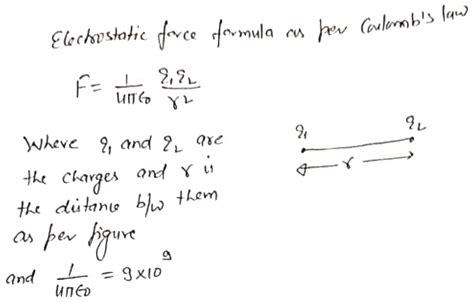 Electrostatic force formula as per Coulomb's law
F = 1/4πε0 q1q2/r2
Where q1 and q2 are
the charges and r is
the distance b/w them
as per figure
and 1/4πε0 = 9×10^9
q1 q2
r